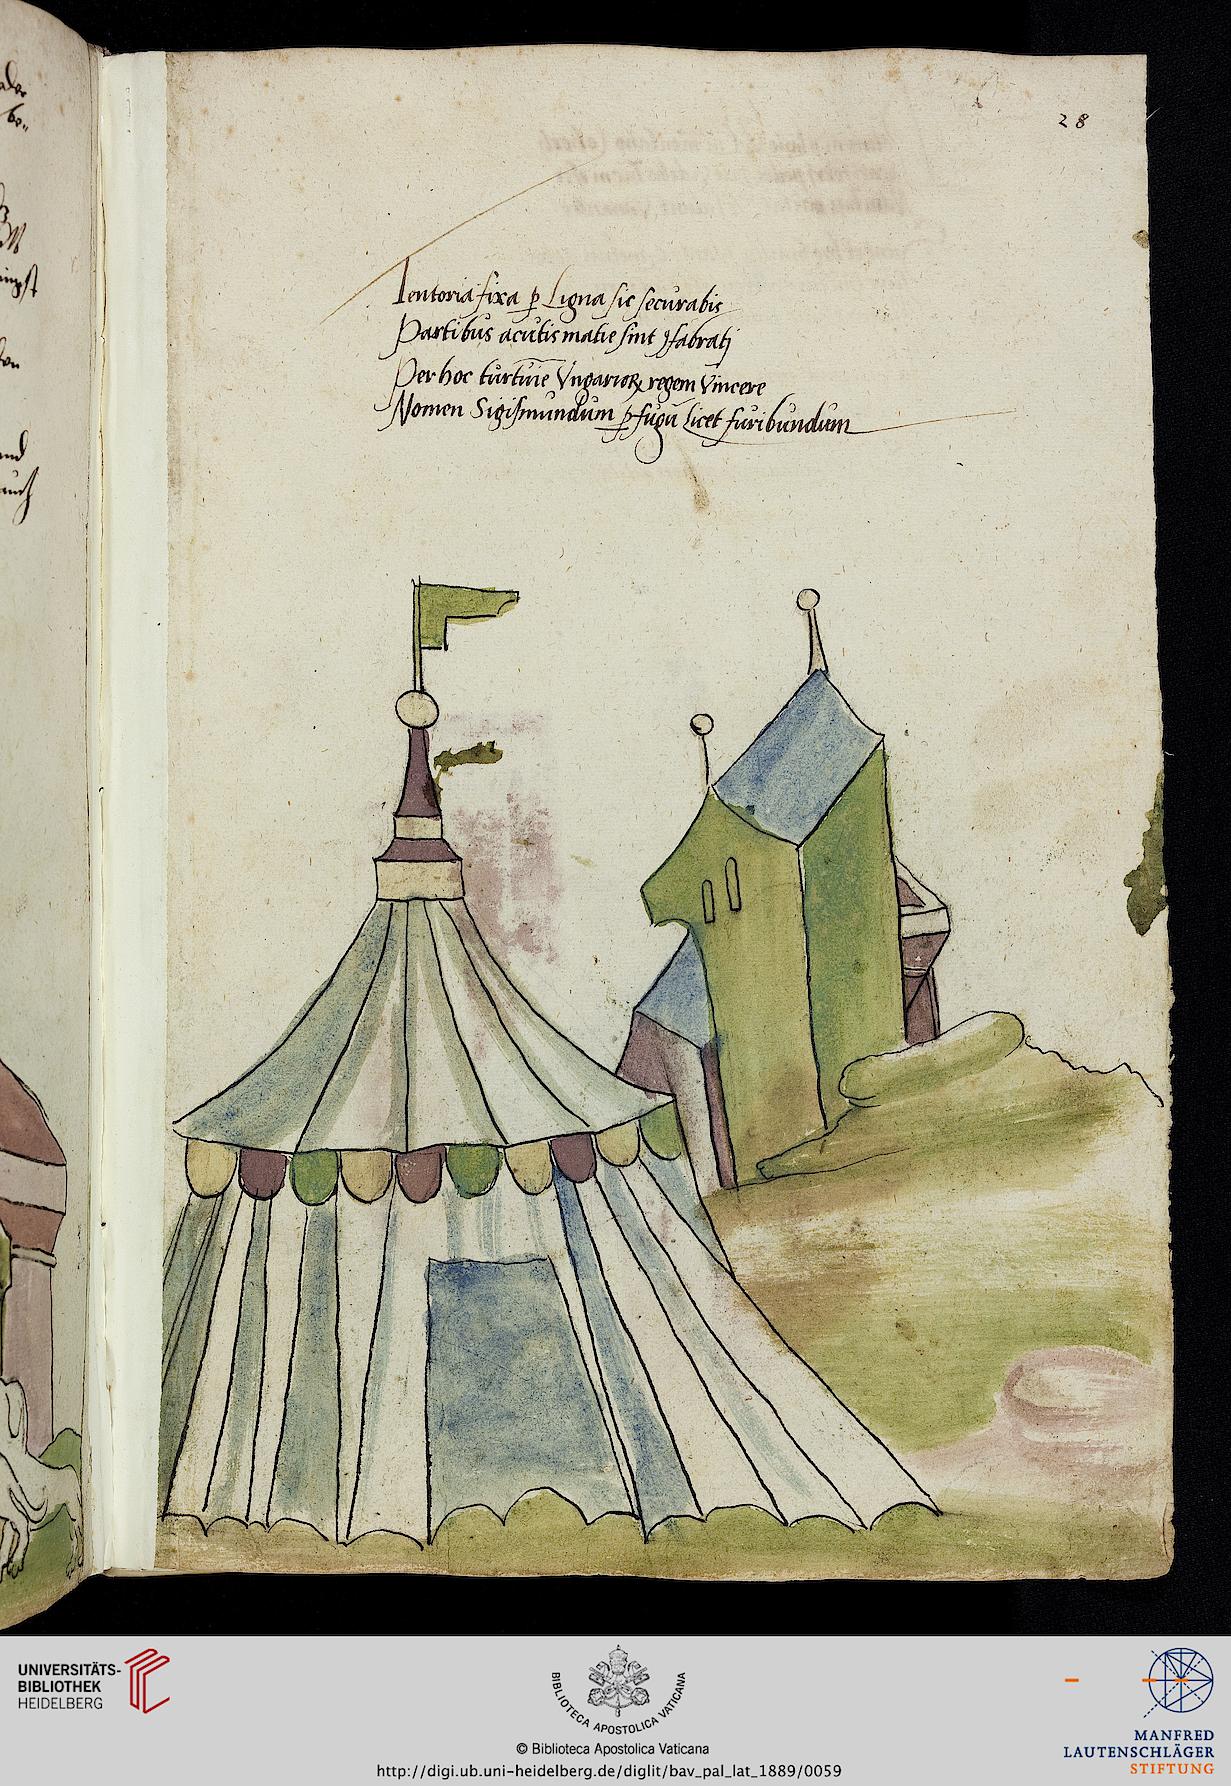 28
Tentoria fixa p Ligna sic securabis
Partibus acutis matie sint ꝯfabrati
Per hoc turtuie Vngarioꝝ regem Vincere
Nomen Sigismundum p fugā Licet furibundum
UNIVERSITÄTS-
BIBLIOTHEK
HEIDELBERG
BIBLIOTECA APOSTOLICA VATICANA
© Biblioteca Apostolica Vaticana
http://digi.ub.uni-heidelberg.de/diglit/bav_pal_lat_1889/0059
MANFRED
LAUTENSCHLÄGER
STIFTUNG